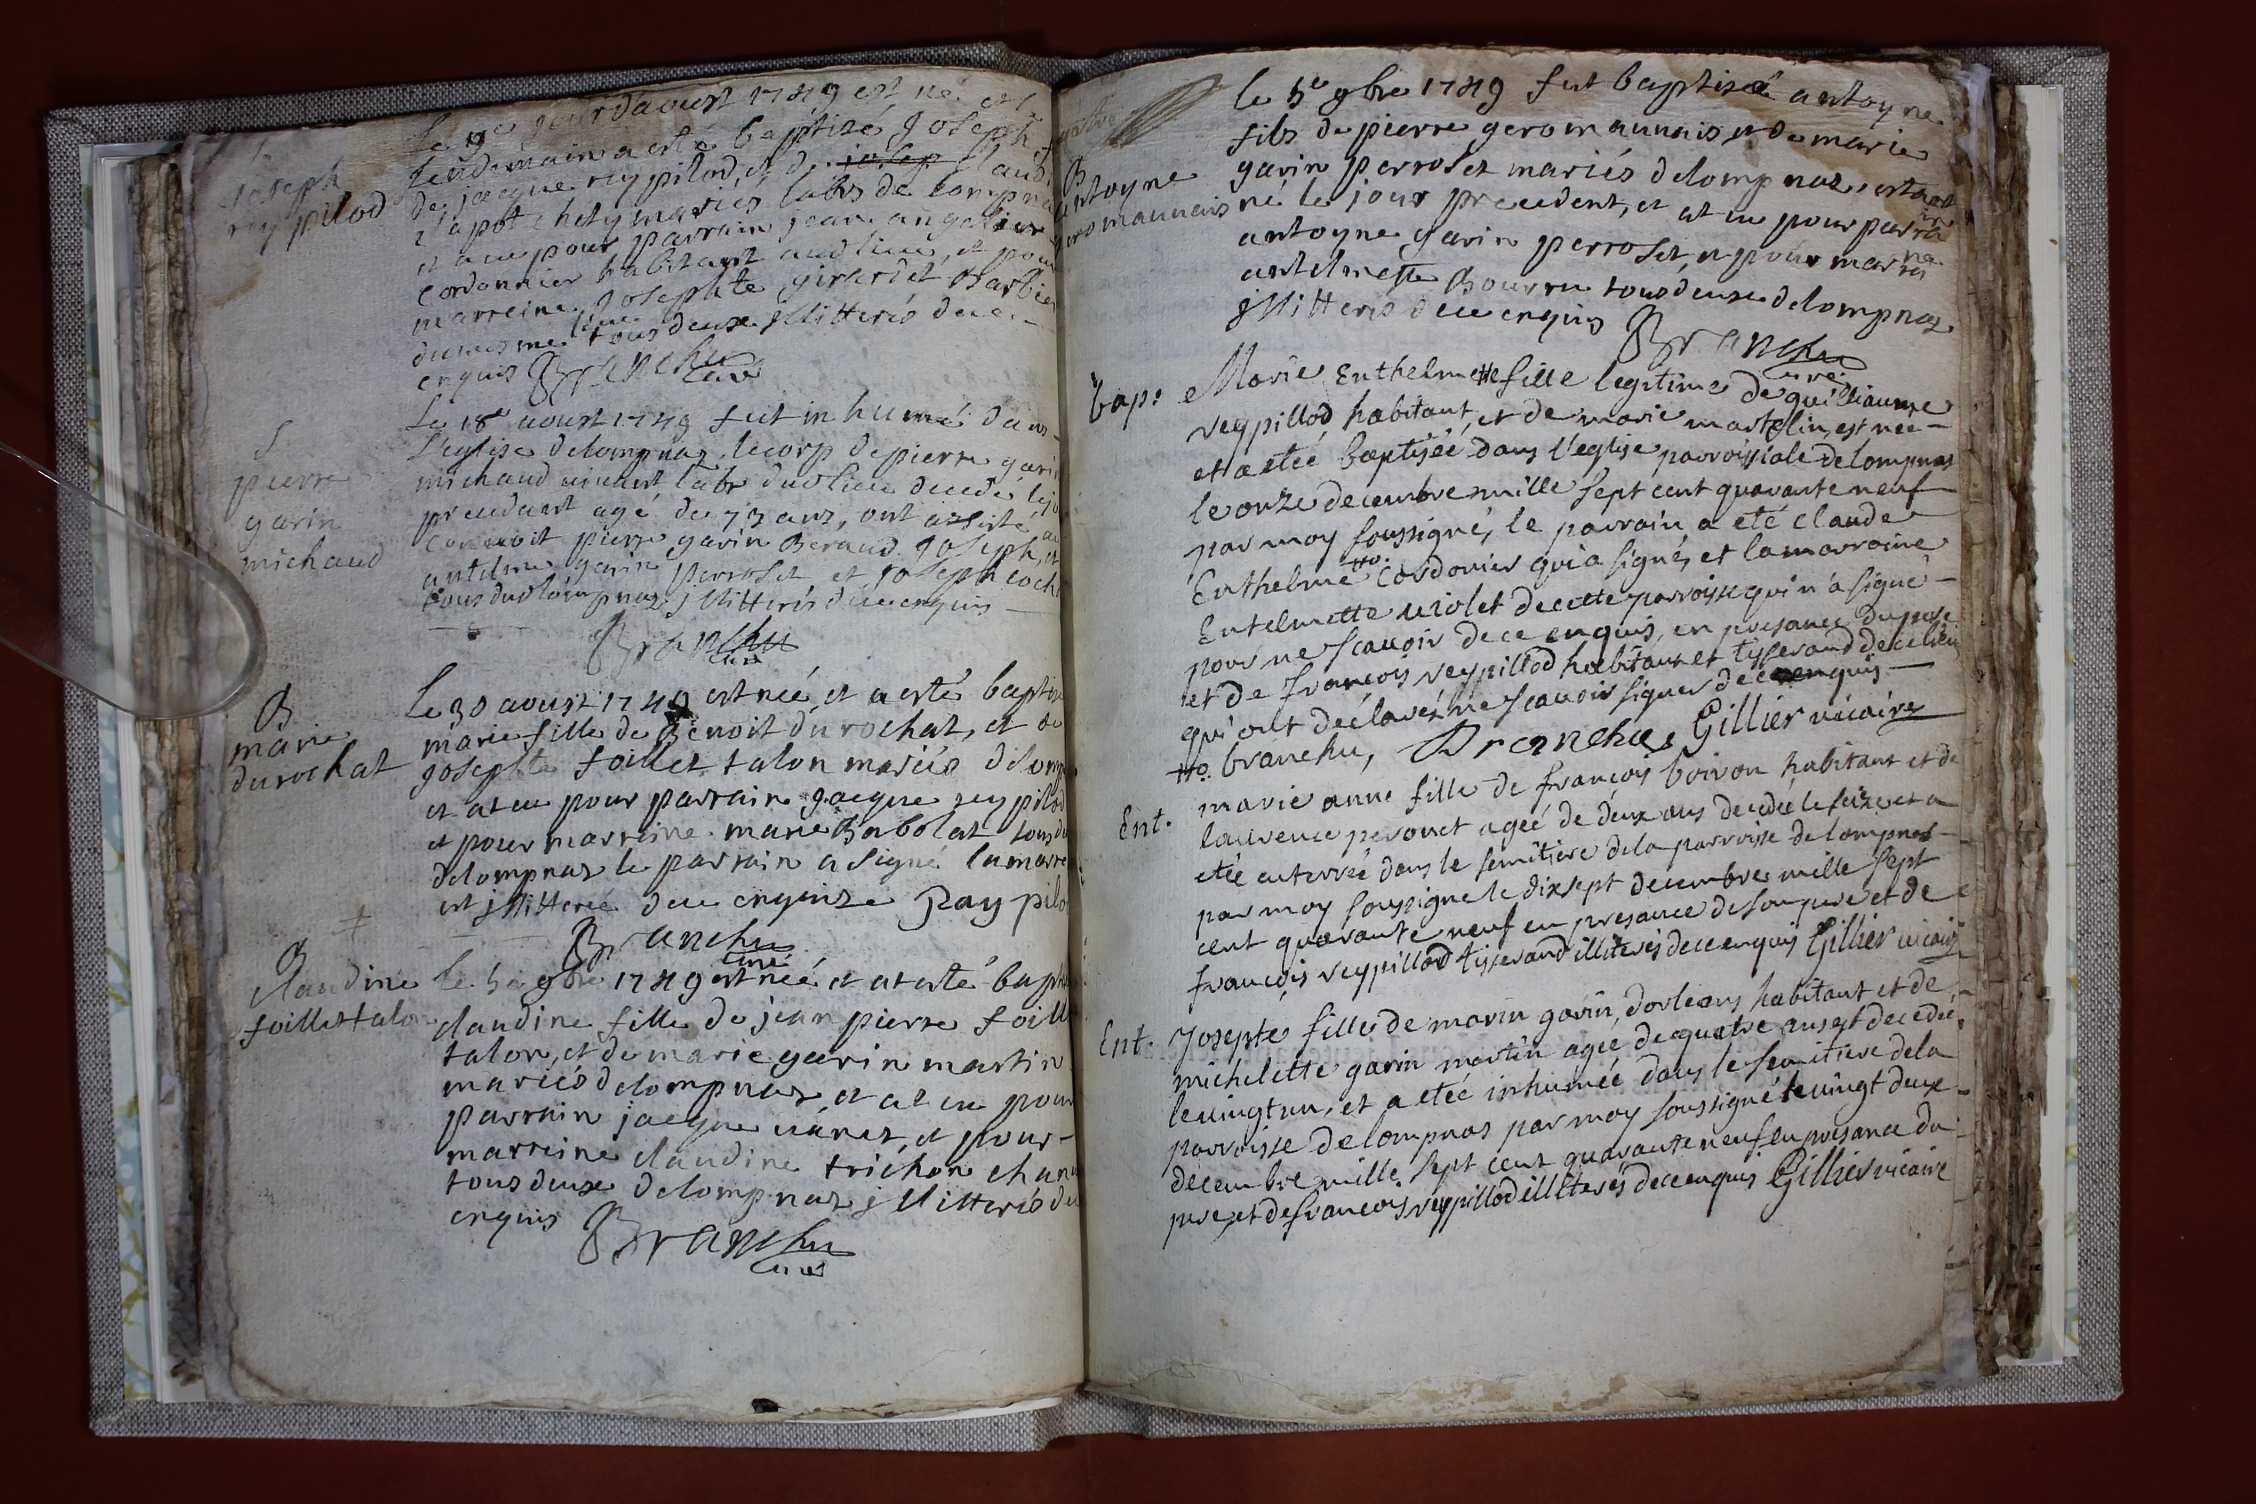 Le 9e jour daoust 1749 est né et l
lendemain a esté baptizé Joseph f
de jacque rey pilod, et de josep Claud
capot chety mariés labrs de Lompna
et a eu pour parrain jean angelier
cordonnier habitant aud lieu, et pour
marreine Josephte girardet Barbier
du mesme lieu tous deux jllitterés de ce
enquis Branchu
curé
Joseph
rey pilod
Le 18e aoust 1749 fut inhumé dans
l'eglise delompnaz lecorp de pierre garin
michaud vivant labr dudlieu decedé le jo
precedant agé de 73 ans, ont assisté au
convoit pierre garin Beraud Joseph, et
antelme garin perroset et Joseph coch
tous dudlompnaz jllitterés dece enquis
Branchu
curé
S
pierre
garin
michaud
Le 30 aoust 1749 est née, et a esté baptiz
marie fille de Benoit durochat, et de
Josephte foillet talon mariés delomp
et at eu pour parrain Jacque rey pilod
et pour marreine marie Babolat tous d
delompnaz le parrain a signé la marre
est jllitteré dece enquize Ray pilo
Branchu
curé
B
marie
durochat
le 5e 9bre 1749 est née et at esté bapt
claudine fille de jean pierre foill
talon, et de marie garin martin
mariés delompnaz, et at eu pour
parrain jacque vanet, et pour
marreine claudine trichon chan
tous deux delompnaz jllitterés de
enquis Branchu
curé
B
Claudine
foillet talon
le 5e 9bre 1749 fut baptizé antoyne
fils de pierre geromaunais et de marie
garin perroset mariés delompnaz, estant
né le jour precedent, et at eu pour parra
in
antoyne garin perroset, et pour marrei
ne
antelmette Bourru tous deux delompnaz
jllitterés dece enquis Branchu
curé
B
antoyne
geromaunais
bap: Marie Enthelmette fille legitime de guilliaume
reypillod habitant, et de marie martelin, est née
et a etée baptisée dans l'eglise parroissiale delompnas
le onze decembre mille sept cent quarante neuf
par moy soussigné, le parrain a eté claude
Enthelme Cordonier qui a signé, et la marraine
Entelmette violet decette parroisse qui n'a signé
pour ne scauoir de ce enquis, en presance du pere
et de francois reypillod habitant et tisserand decelieu
qui ont declarés ne scauoir signer dece enquis
branchu, Branchu Gillier vicaire
Ent. marie anne fille de francois boiron habitant et de
laurence peronet ageé de deux ans decedée le seize et a
etée enterrée dans le semitiere dela parroisse delompnas
par moy soussigne le dixsept decembre mille sept
cent quarante neuf en presance de son pere et de
francois reypillod tisserand illiterés dece enquis Gillier vicaire
Ent. Josepte fille de marin garin, dorleans habitant et de
michelette garin martin ageé de quatre ans est decedée
le vingt un, et a etée inhumée dans le semitiere dela
parroisse delompnas par moy soussigné le vingt deux
decembre mille sept cent quarante neuf en presance du
pere, et de francois reypillod illiterés dece enquis Gillier vicaire